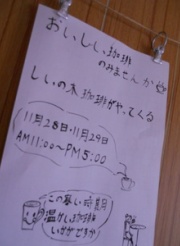 おいしい珈琲
のみませんか
しいの木珈琲がやってくる
11月28日・11月29日
AM11:00～PM5:00
この寒い時期
温かい珈琲
いかがですか